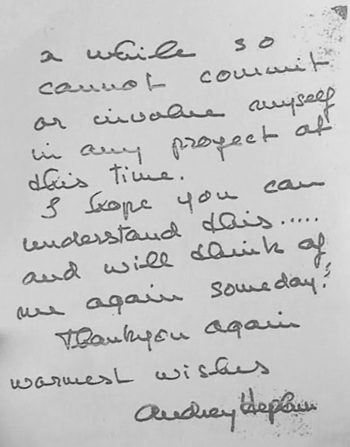 a while so
cannot commit
or involve myself
in any project at
this time.
I hope you can
understand this.....
and will think of
me again someday!
Thankyou again
warmest wishes
Audrey Hepburn